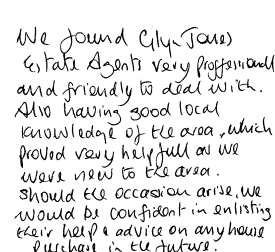 We found Glyn Jones
Estate Agents very proffessionall
and friendly to deal with.
Also having good local
knowledge of the area, which
proved very helpfull as we
were new to the area.
Should the occassion arise, we
would be confident in enlisting
their help & advice on any house
purchase in the future.